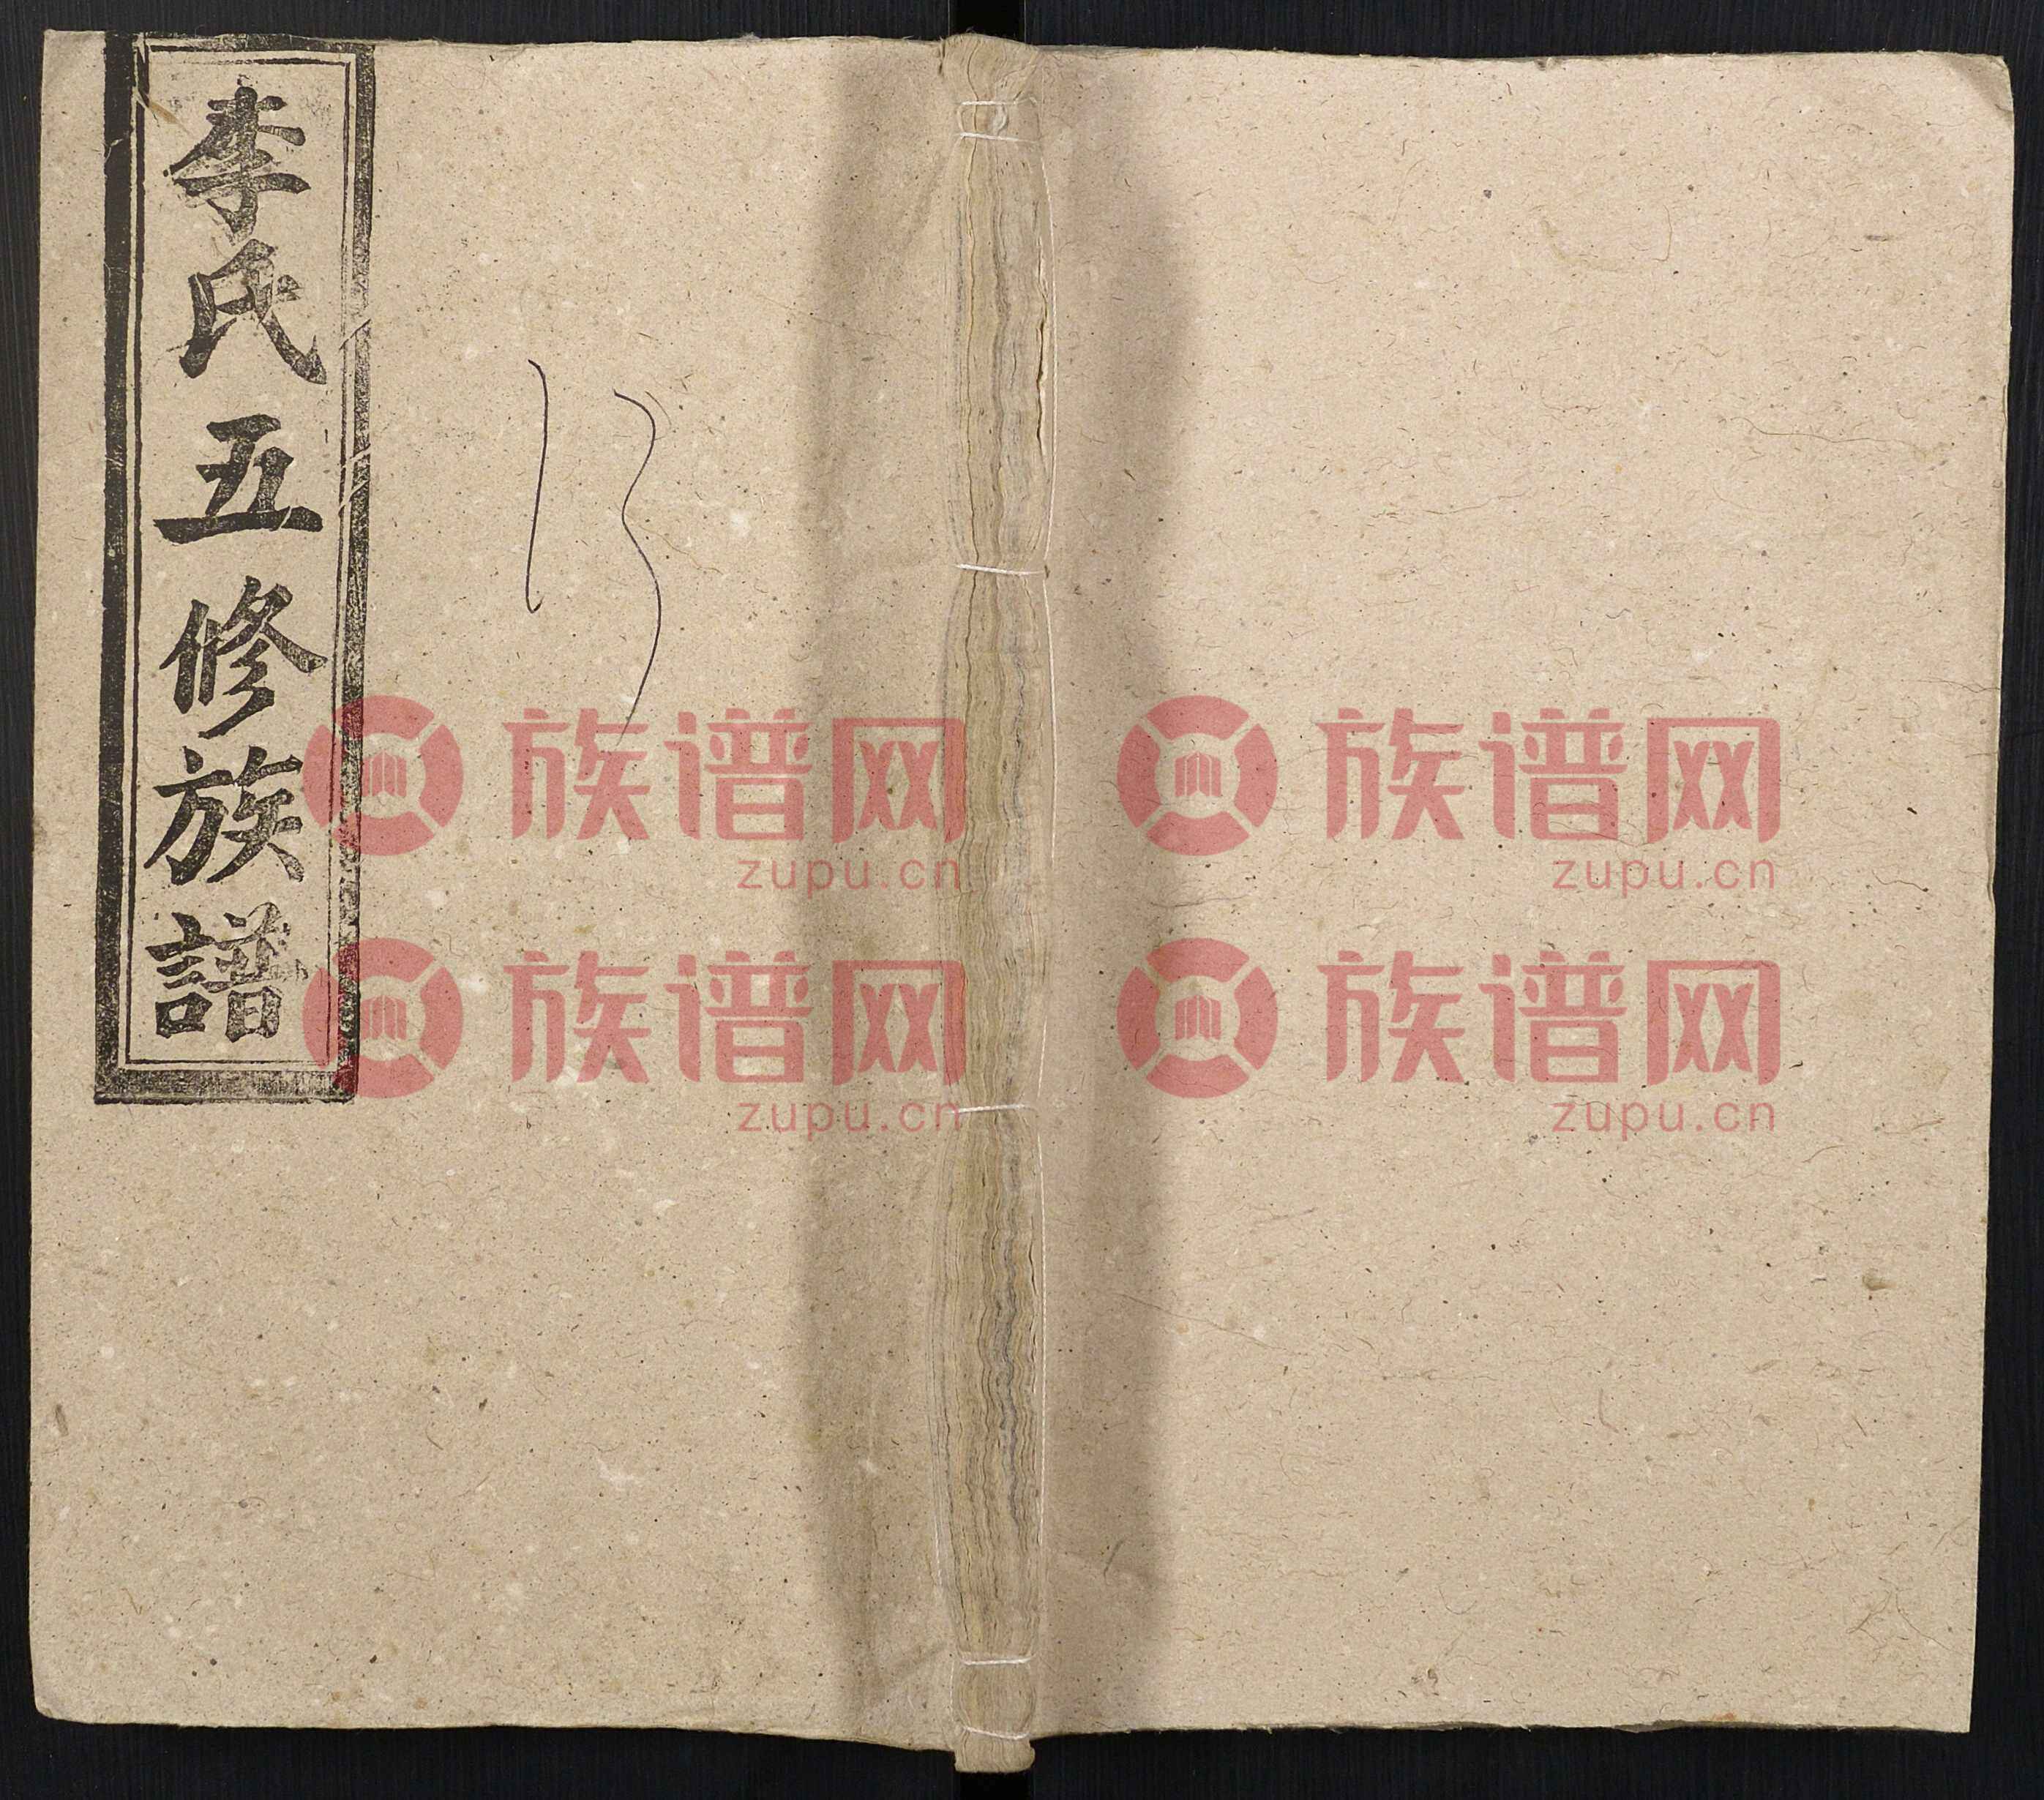 李氏五修族譜
13
族谱网
zupu.cn
族谱网
zupu.cn
族谱网
zupu.cn
族谱网
zupu.cn